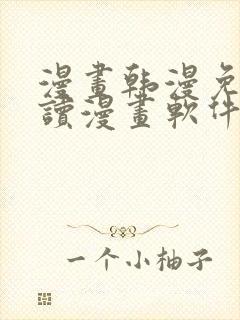 漫畫韩漫免
讀漫畫軟件
一个小柚子